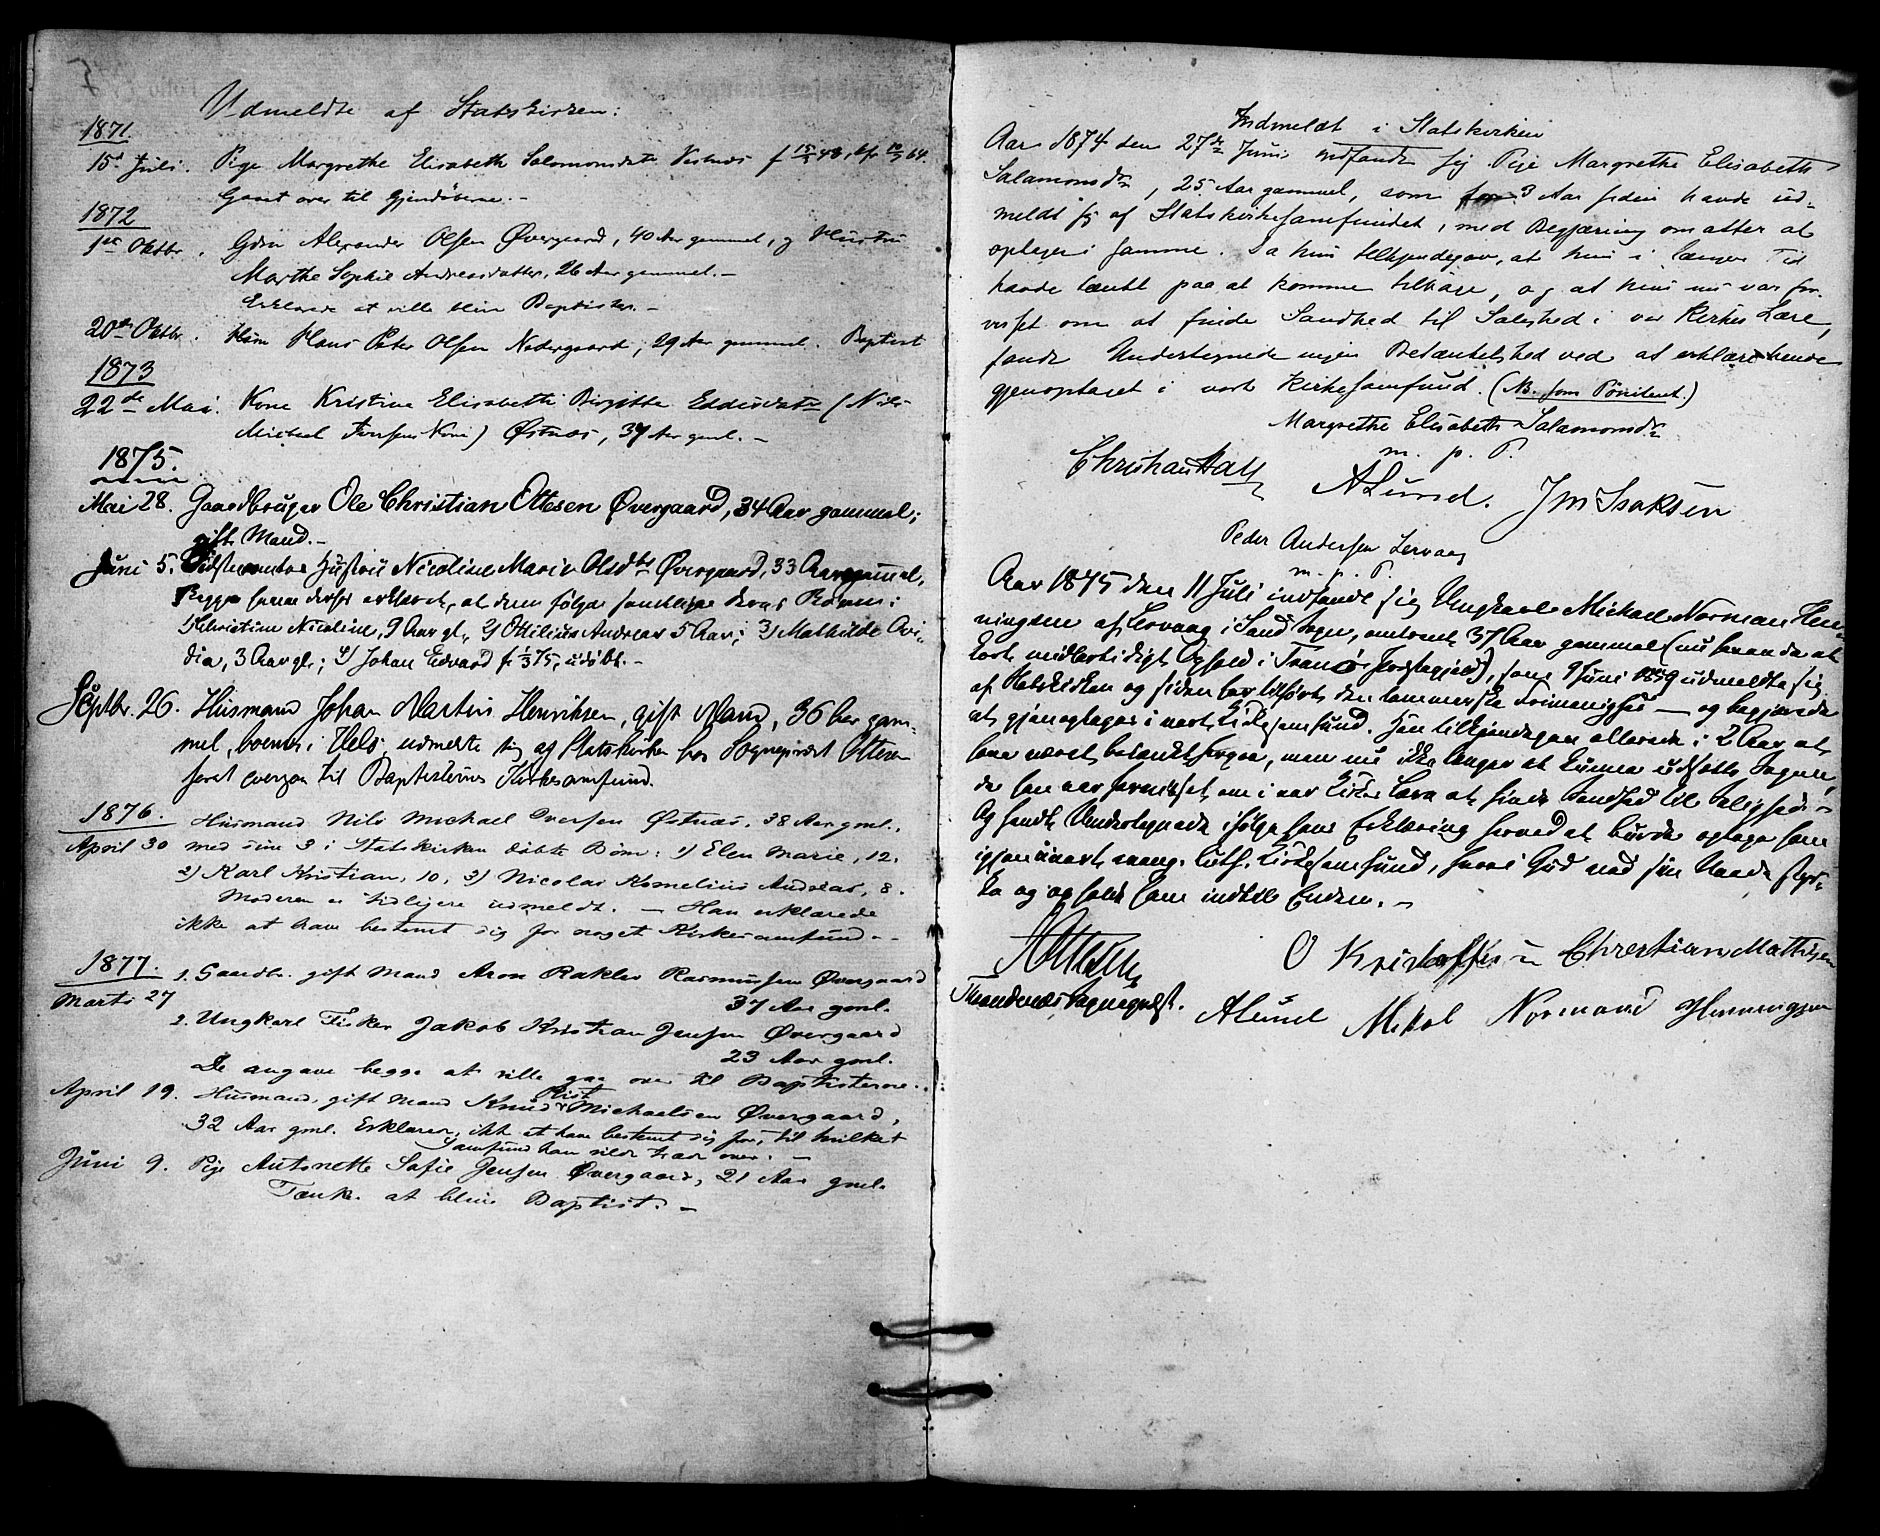 Udmeldte af Statskirken:
1871.
15de Juli. Pige Margrethe Elisabeth Salamonsdatr Vestnæs f 15/ 48, kf 10/ 64.
Gaaet over til Gjendøberne. -
1872
1ste Oktbr. Gdm Alexander Olsen Øvergaard, 40 Aar gammel, og Hustru
Marthe Sophie Andreasdatter, 26 Aar gammel. -
Erklærede at ville blive Baptister. -
20de Oktbr. Hans Peter Olsen Nedergaard, 29 Aar gammel. Baptist
1873
22de Mai. Kone Kristine Elisabeth Birgitte Eddisdatr (Nils
Michael Iversens Kone) Østnæs, 37 Aar gml. -
1875.
Mai 28. Gaardbruger Ole Christian Ottesen Øvergaard, 34 Aar gammel;
gift Mand. -
Juni 5. Sidstnævntes Hustru Nicoline Marie Olsdtr Øvergaard, 33 Aar gammel,
Begge have derhos erklæret, at dem følge samtlige deres Børn:
1) Christine Nicoline, 9 Aar gl., 2) Ottilius Andreas 5 Aar; 3) Mathilde Ovi-
dia, 3 Aar gl.; 4) Johan Edvard f. 1/3 75, udøbt. -
Septbr. 26. Husmand Johan Martin Henriksen, gift Mand, 36 Aar gam-
mel, boende i Vels, udmeldte sig af Statskirken hos Sogneprest Ottesen
for at overgaa til Baptisternes Kirkesamfund.
1876.
April 30 Husmand Nils Michael Iversen Østnæs, 38 Aar gml.,
med sine 3 i Statskirken døbte Børn: 1) Elen Marie, 12.
2) Karl Kristian, 10, 3) Nicolai Kornelius Andreas, 8.
Moderen er tidligere udmeldt. - Han erklærede
ikke at have bestemt sig for noget Kirkesamfund. -
1877.
Marts 27 1. Gaardbr. gift Mand Aron Rakler Rasmussen Øvergaard
37 Aar gml.
2. Ungkarl Fisker Jakob Kristian Jensen Øvergaard
23 Aar gml.
De angave begge at ville gaa over til Baptisterne. -
April 19. Husmand, gift Mand Knud Rist Michaelsen Øvergaard,
32 Aar gml. Erklærer, ikke at have bestemt sig for, til hvilket
Samfund han vilde træde over. -
Juni 9. Pige Antonette Sofie Jensen Øvergaard, 21 Aar gml.
Tænk. at blive Baptist. -
Indmeldt i Statskirken
Aar 1874 den 27de Juni indfandt sig Pige Margrethe Elisabeth
Salamonsdr, 25 Aar gammel, som for 3 Aar siden havde ud-
meldt sig af Statskirkesamfundet, med Begjæring om atter at
optages i samme. Da hun tilkjendegav, at hun i længere Tid
havde tænkt paa at komme tilbage, og at hun nu var for-
visset om at finde Sandhed til Salighed i vor Kirkes Lære,
fandt Undertegnede ingen Betænkelighed ved at erklære hende
gjenoptaget i vort Kirkesamfund. (NB. som Pønitent.)
Margrethe Elisabeth Salamonsdr
m. p. P.
Christian A Lund. J M Isaksen
Peder Andersen Lervaag
m. p. P.
Aar 1875 den 11 Juli indfandt sig Ungkarl Mickael Norman Hen-
ningsen af Lervaag i Sand Sogn, omtrent 37 Aar gammel (nu havende et
kort midlertidigt Ophold i Tranø Præstegjeld), som 9 Juni 1859 udmeldte sig
af Statskirken og siden har tilhørt den lammerske Frimenighed - og begjærede
at gjenoptages i vort Kirkesamfund. Han tilkjendegav allerede i 2 Aar at
have været betænkt herpaa, men nu ikke længer at kunne udsætte Sagen,
da han var forvisset om i vor Kirkes Lære at finde Sandhed til Salighed. -
Og fandt Undertegnede ifølge hans Erklæring herved at burde optage ham
igjen i vort evang. luth. Kirkesamfund, hvori Gud ved sin Naade styr-
ke og opholde ham indtil Enden. -
Ottesen O Kristoffersen Christian Mathisen
Trondenæs Sogneprest. A Lund Mikal Normand Henningsen